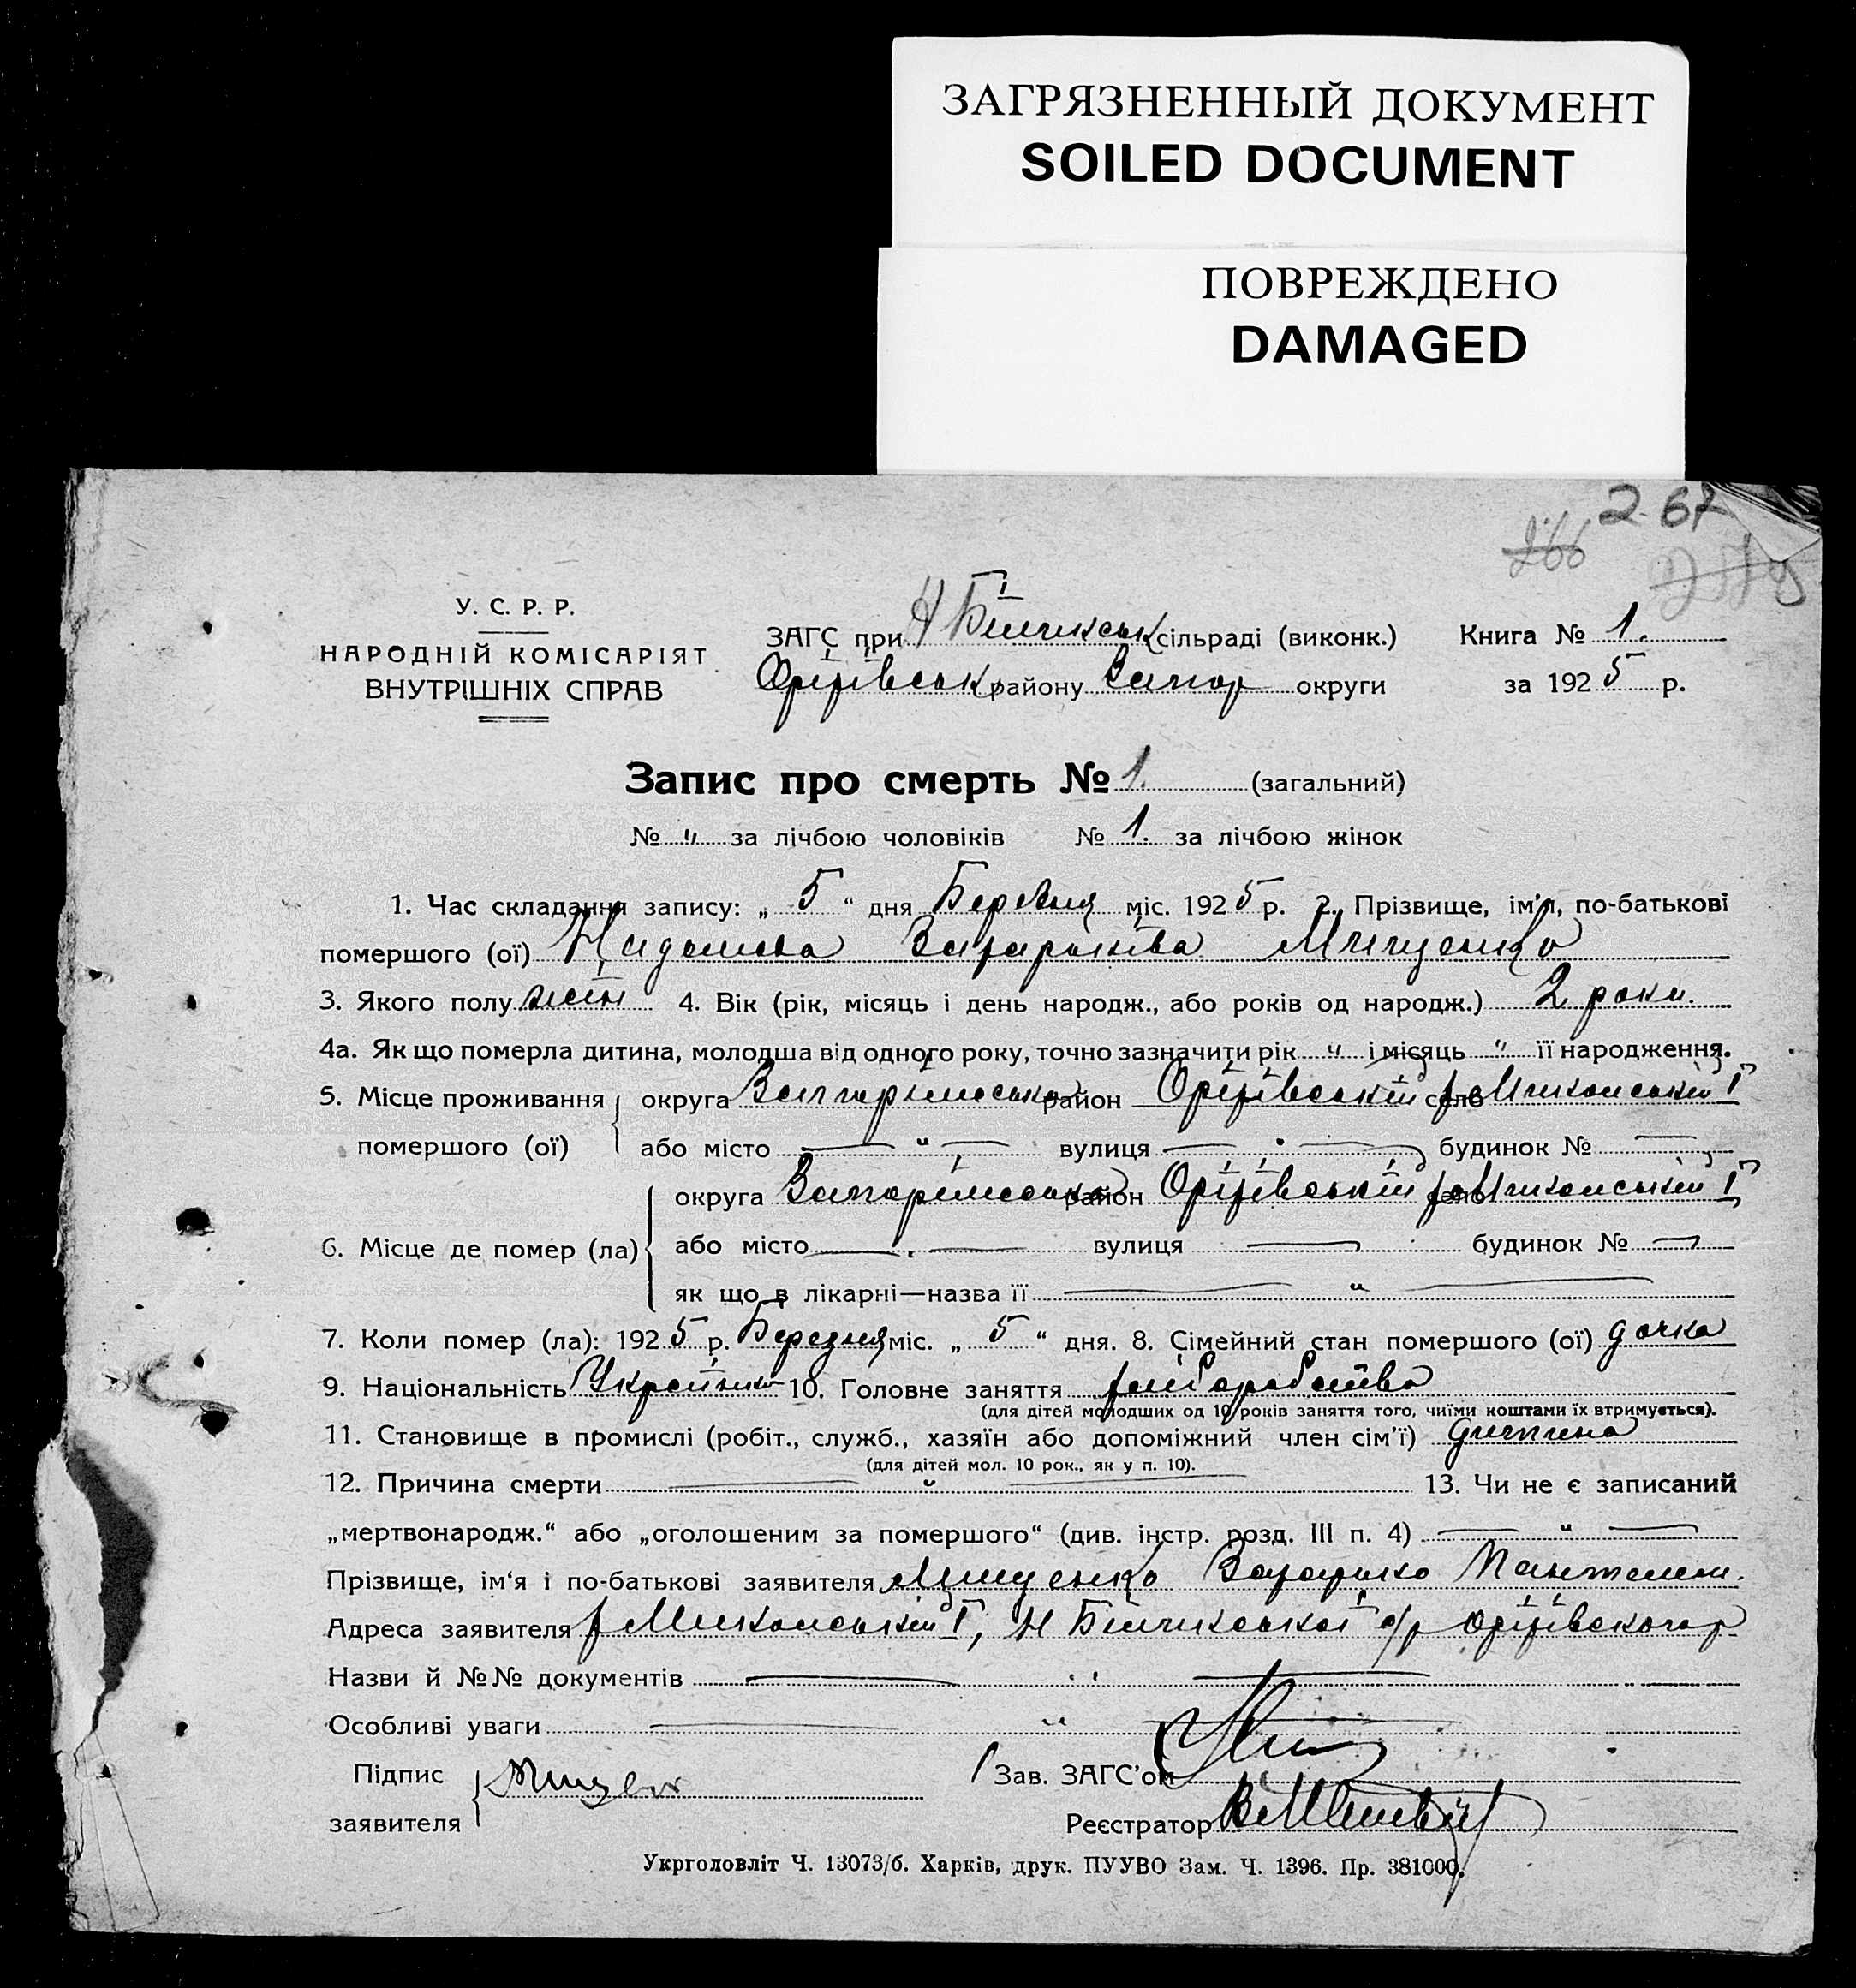 ЗАГРЯЗНЕННЫЙ ДОКУМЕНТ
SOILED DOCUMENT
ПОВРЕЖДЕНО
DAMAGED
267
266
У. С. Р. Р.
НАРОДНІЙ КОМІСАРІЯТ
ВНУТРІШНІХ СПРАВ
ЗАГС при сільраді (виконк.)
Оріхівськ району Запор округи
Книга № 1.
за 1925 р.
Запис про смерть № 1. (загальний)
№ " за лічбою чоловіків № 1. за лічбою жінок
1. Час складання запису: „ 5 “ дня Березня міс. 1925 р. 2. Прізвище, ім'я, по-батькові
помершого (ої) Мищенко
3. Якого полу жін 4. Вік (рік, місяць і день народж., або років од народж.) 2 роки.
4а. Як що померла дитина, молодша від одного року, точно зазначити рік " і місяць " її народження.
5. Місце проживання округа Запоріжська район Оріхівський село
помершого (ої) або місто — " — вулиця — " — будинок № —
округа Запоріжська район Оріхівський село
6. Місце де помер (ла) або місто — " — вулиця — будинок № —
як що в лікарні—назва її — " —
7. Коли помер (ла): 1925 р. Березня міс. „ 5 “ дня. 8. Сімейний стан помершого (ої) дочка
9. Національність Україн 10. Головне заняття хліборобство
(для дітей молодших од 10 років заняття того, чиїми коштами їх втримується).
11. Становище в промислі (робіт., служб., хазяїн або допоміжний член сім'ї) дитина
(для дітей мол. 10 рок., як у п. 10).
12. Причина смерти — " — 13. Чи не є записаний
„мертвонародж.“ або „оголошеним за помершого“ (див. інстр. розд. III п. 4) — " —
Прізвище, ім'я і по-батькові заявителя Мищенко
Адреса заявителя с/р
Назви й №№ документів — " —
Особливі уваги — " —
Підпис
заявителя
Зав. ЗАГС'ом
Реєстратор
Укрголовліт Ч. 13073/б. Харків, друк. ПУУВО Зам. Ч. 1396. Пр. 381000.